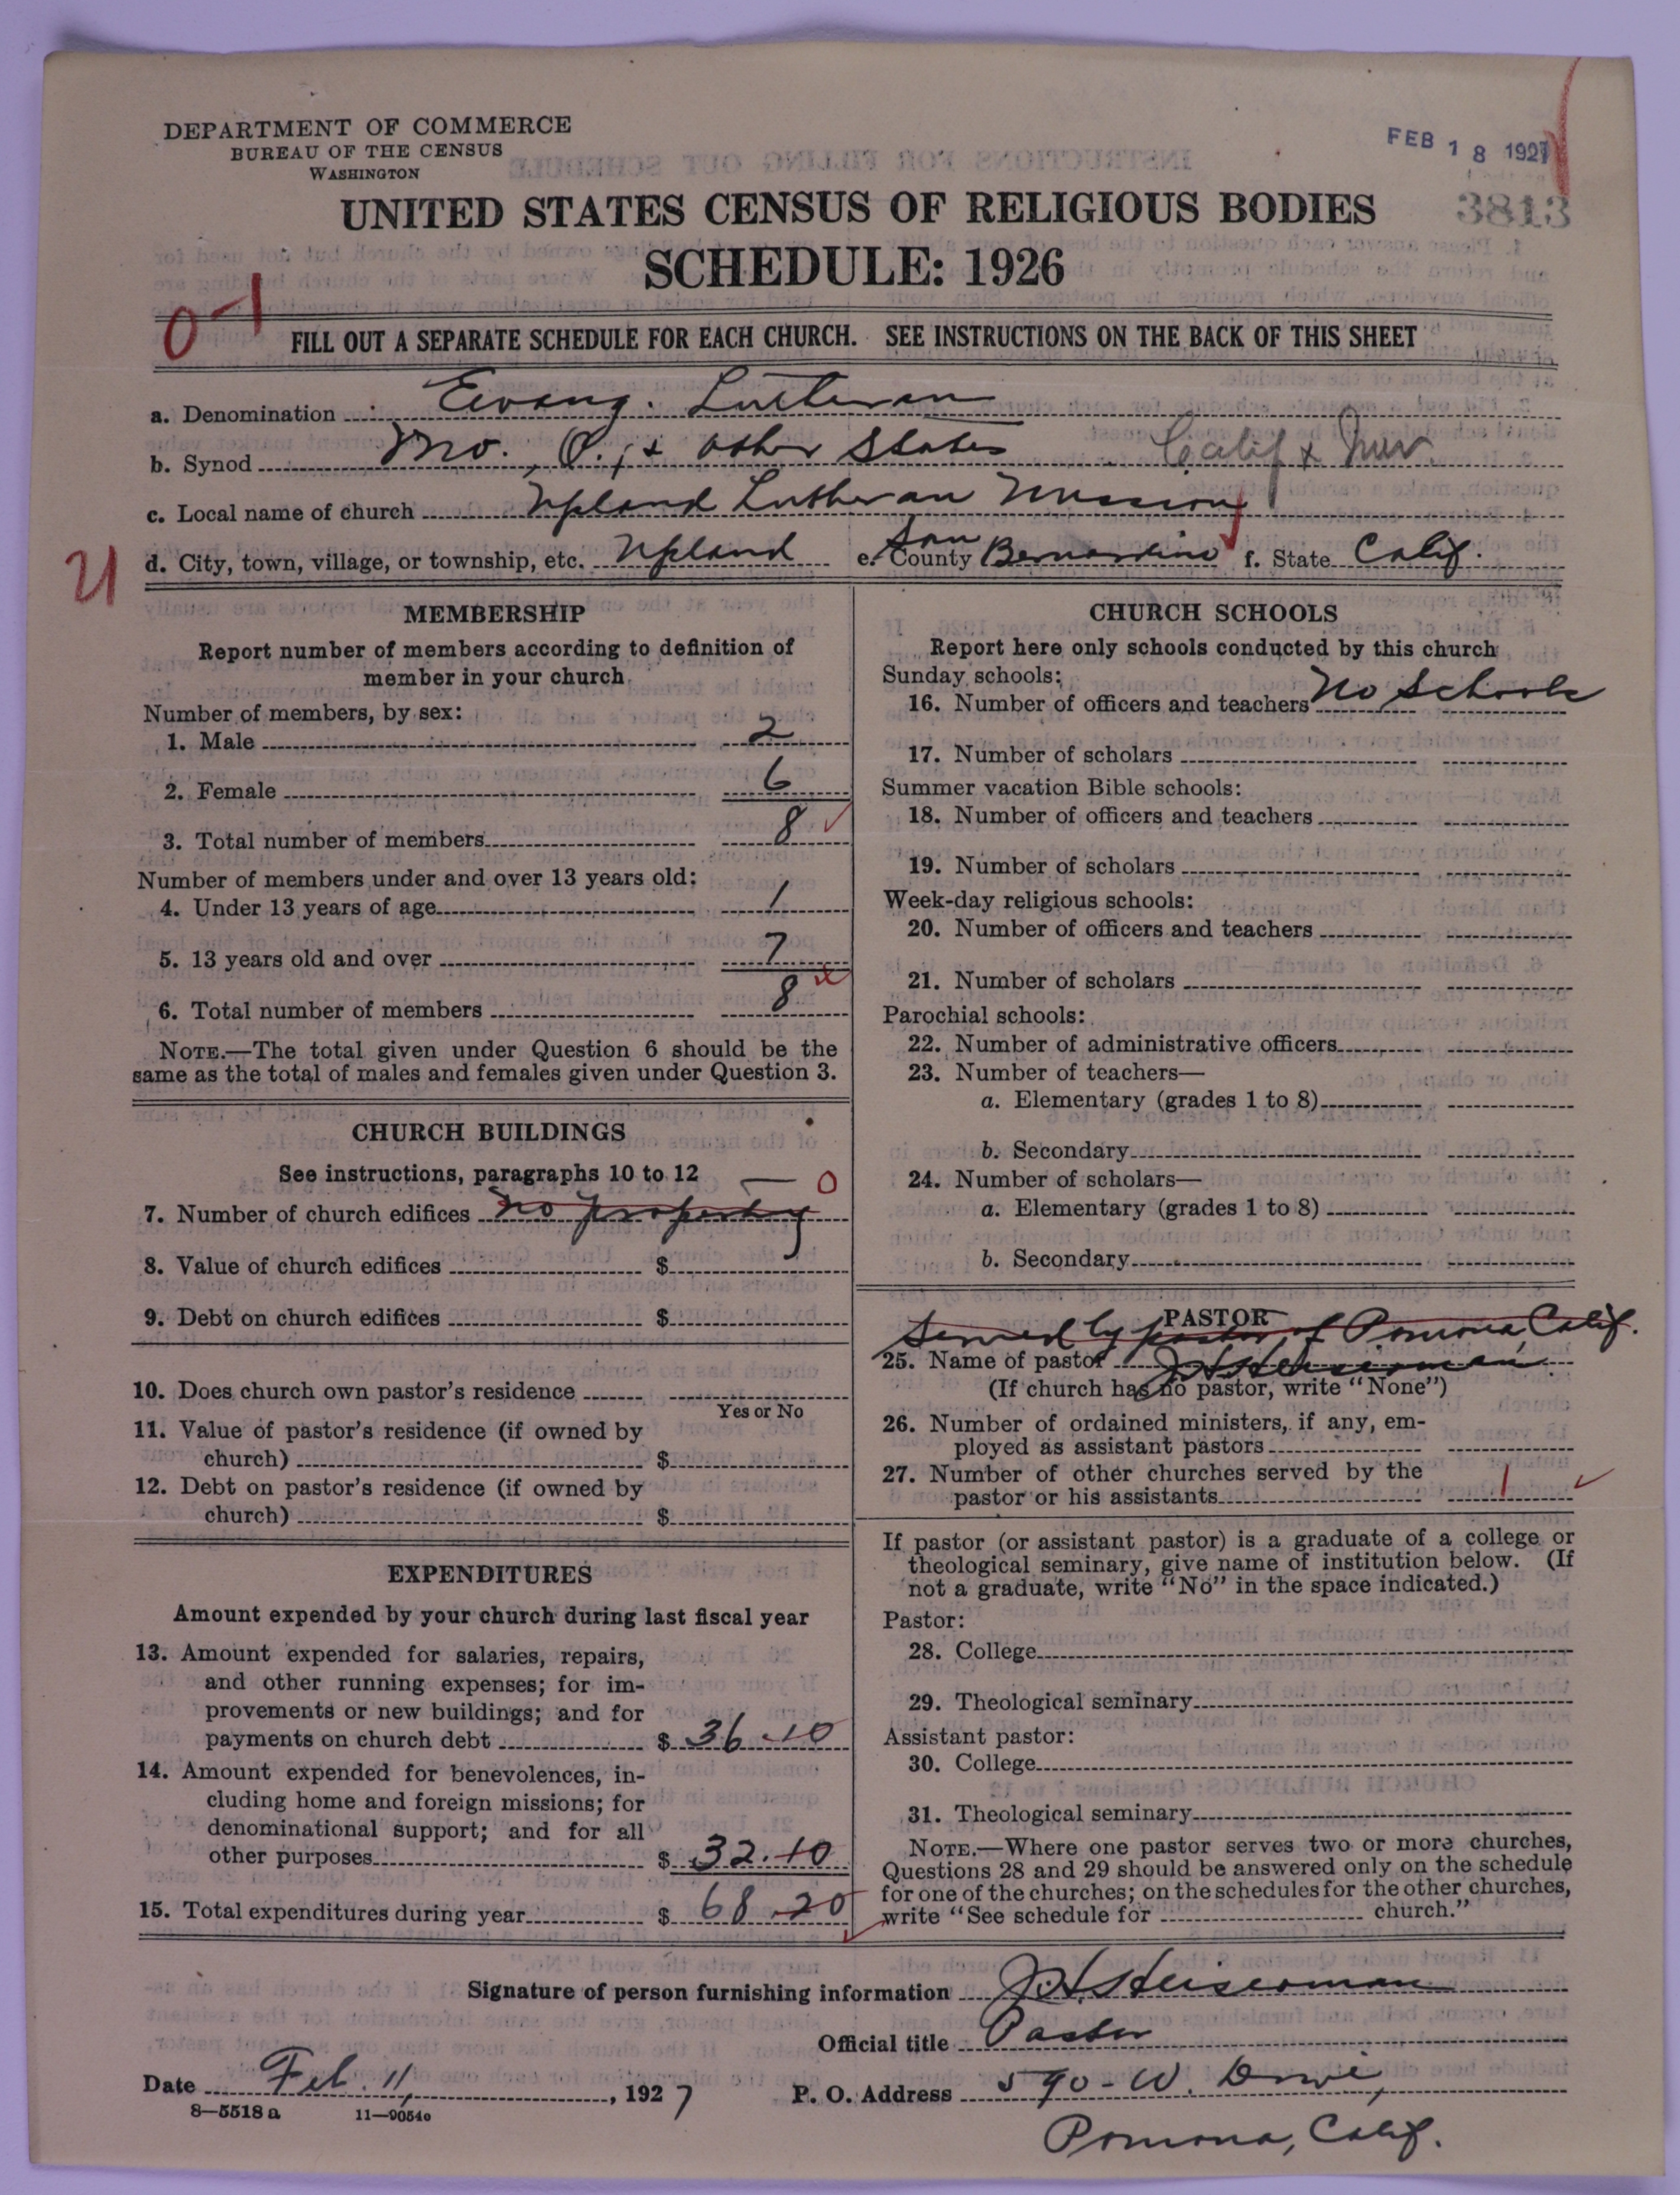 DEPARTMENT OF COMMERCE
BUREAU OF THE CENSUS
WASHINGTON
FEB 18 1927
3813
UNITED STATES CENSUS OF RELIGIOUS BODIES
SCHEDULE: 1926
0-1
FILL OUT A SEPARATE SCHEDULE FOR EACH CHURCH. SEE INSTRUCTIONS ON THE BACK OF THIS SHEET
a. Denomination Evang. Lutheran
b. Synod Mo., O., & other States Calif & Nev.
c. Local name of church Upland Lutheran Mission
d. City, town, village, or township, etc. Upland e. County San Bernardino f. State Calif.
MEMBERSHIP
Report number of members according to definition of
member in your church
Number of members, by sex:
1. Male 2
2. Female 6
3. Total number of members 8
Number of members under and over 13 years old:
4. Under 13 years of age 1
5. 13 years old and over 7
6. Total number of members 8
NOTE.—The total given under Question 6 should be the
same as the total of males and females given under Question 3.
CHURCH BUILDINGS
See instructions, paragraphs 10 to 12
— 0
7. Number of church edifices No property
8. Value of church edifices $
9. Debt on church edifices $
10. Does church own pastor's residence
Yes or No
11. Value of pastor's residence (if owned by
church) $
12. Debt on pastor's residence (if owned by
church) $
EXPENDITURES
Amount expended by your church during last fiscal year
13. Amount expended for salaries, repairs,
and other running expenses; for im-
provements or new buildings; and for
payments on church debt $ 36.10
14. Amount expended for benevolences, in-
cluding home and foreign missions; for
denominational support; and for all
other purposes $ 32.10
15. Total expenditures during year $ 68.20
CHURCH SCHOOLS
Report here only schools conducted by this church
Sunday schools:
16. Number of officers and teachers No Schools
17. Number of scholars
Summer vacation Bible schools:
18. Number of officers and teachers
19. Number of scholars
Week-day religious schools:
20. Number of officers and teachers
21. Number of scholars
Parochial schools:
22. Number of administrative officers
23. Number of teachers—
a. Elementary (grades 1 to 8)
b. Secondary
24. Number of scholars—
a. Elementary (grades 1 to 8)
b. Secondary
PASTOR
Served by pastor of Pomona Calif.
25. Name of pastor J H Heiserman
(If church has no pastor, write "None")
26. Number of ordained ministers, if any, em-
ployed as assistant pastors
27. Number of other churches served by the
pastor or his assistants 1
If pastor (or assistant pastor) is a graduate of a college or
theological seminary, give name of institution below. (If
not a graduate, write "No" in the space indicated.)
Pastor:
28. College
29. Theological seminary
Assistant pastor:
30. College
31. Theological seminary
NOTE.—Where one pastor serves two or more churches,
Questions 28 and 29 should be answered only on the schedule
for one of the churches; on the schedules for the other churches,
write "See schedule for church."
Signature of person furnishing information J H Heiserman
Official title Pastor
Date Feb. 11, 1927 P. O. Address 590 - W.
8—5518 a 11—9054o
Pomona, Calif.